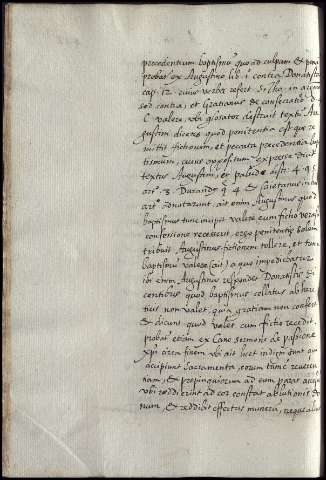 precedentium baptismū quo ad culpam & pena
probat ex Augustino lib. i contra Donatista
cap. 12 cuius verba refert
sed contra, et Gratianus de consecratiō. d.
C. valere, ubi glosator destruit textū Au
gustini dicens quod penitentia est que re
mittit fictionem, et peccata precedentia bap
tismum, cuius oppositum expresse dicit
textus Augustini, et palude dist. 4. q.
art. 3. Durandus q. 4 & Caietanus in
art. notarunt, ait enim Augustinus quod
baptismus tunc incipit valere cum fictio veraci
confessione recesserit, ergo penitentie solum
tribuit Augustinus fictionem tollere, et tunc
baptismū valere a quo impediebatur
ibi enim Augustinus respōdet Donatistis di
centibus quod baptismus collatus ab here
ticis non valet, quia gratiam non confert
& dicunt quod valet cum fictio recedit.
probat etiam ex Cane sermone de passione
Xpī circa finem ubi ait licet indigni sint qui
accipiunt Sacramenta, eorum tamē reveren
tiam, & propinquiorum ad eum parat accessū
ubi reddierint ad cor constat ablutionis do
num, & reddibit effectus munerū, neque